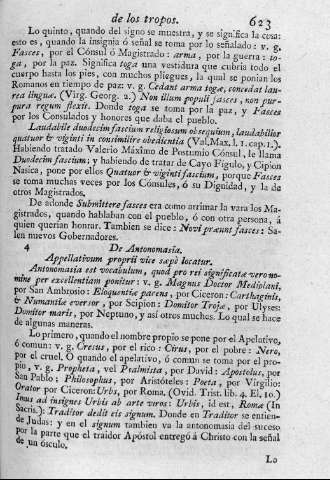 de los tropos. 623
Lo quinto, quando del signo se muestra, y se significa la cosa:
esto es, quando la insignia ó señal se toma por lo señalado: v. g.
Fasces, por el Cónsul ó Magistrado: arma, por la guerra: to-
ga, por la paz. Significa toga una vestidura que cubria todo el
cuerpo hasta los pies, con muchos pliegues, la qual se ponian los
Romanos en tiempo de paz: v. g. Cedant arma togæ, concedat lau-
rea linguæ. (Virg. Georg. 2.) Non illum populi fasces, non pur-
pura regum flexit. Donde toga se toma por la paz, y Fasces
por los Consulados y honores que daba el pueblo.
Laudabile duodecim fascium religiosum obsequium, laudabilior
quatuor & viginti in consimilire obedientia (Val.Max. l. 1. cap. 1.).
Habiendo tratado Valerio Máximo de Postumio Cónsul, le llama
Duodecim fascium; y habiendo de tratar de Cayo Figulo, y Cipion
Nasica, pone por ellos Quatuor & viginti fascium, porque Fasces
se toma muchas veces por los Cónsules, ó su Dignidad, y la de
otros Magistrados.
De adonde Submittere fasces era como arrimar la vara los Ma-
gistrados, quando hablaban con el pueblo, ó con otra persona, á
quien querian honrar. Tambien se dice: Novi præunt fasces: Sa-
len nuevos Gobernadores.
4 De Antonomasia.
Appellativum proprii vice sæpè locatur.
Antonomasia est vocabulum, quod pro rei significatæ vero no-
mine per excellentiam ponitur: v. g. Magnus Doctor Mediolani,
por San Ambrosio: Eloquentiæ parens, por Ciceron: Carthaginis,
& Numantiæ eversor, por Scipion: Domitor Trojæ, por Ulyses:
Domitor maris, por Neptuno, y así otros muchos. Lo qual se hace
de algunas maneras.
Lo primero, quando el nombre propio se pone por el Apelativo,
ó comun: v. g. Cresus, por el rico: Cirus, por el pobre: Nero,
por el cruel. O quando el apelativo, ó comun se toma por el pro-
pio, v. g. Propheta, vel Psalmista, por David: Apostolus, por
San Pablo: Philosophus, por Aristóteles: Poeta, por Virgilio:
Orator por Ciceron: Urbs, por Roma. (Ovid. Trist. lib. 4. El. 10.)
Imus ad insignes Urbis ab arte viros: Urbis, id est, Romæ (In
Sacris.): Traditor dedit eis signum. Donde en Traditor se entien-
de Judas: y en el signum tambien va la antonomasia del suceso
por la parte que el traidor Apóstol entregó á Christo con la señal
de un ósculo.
Lo